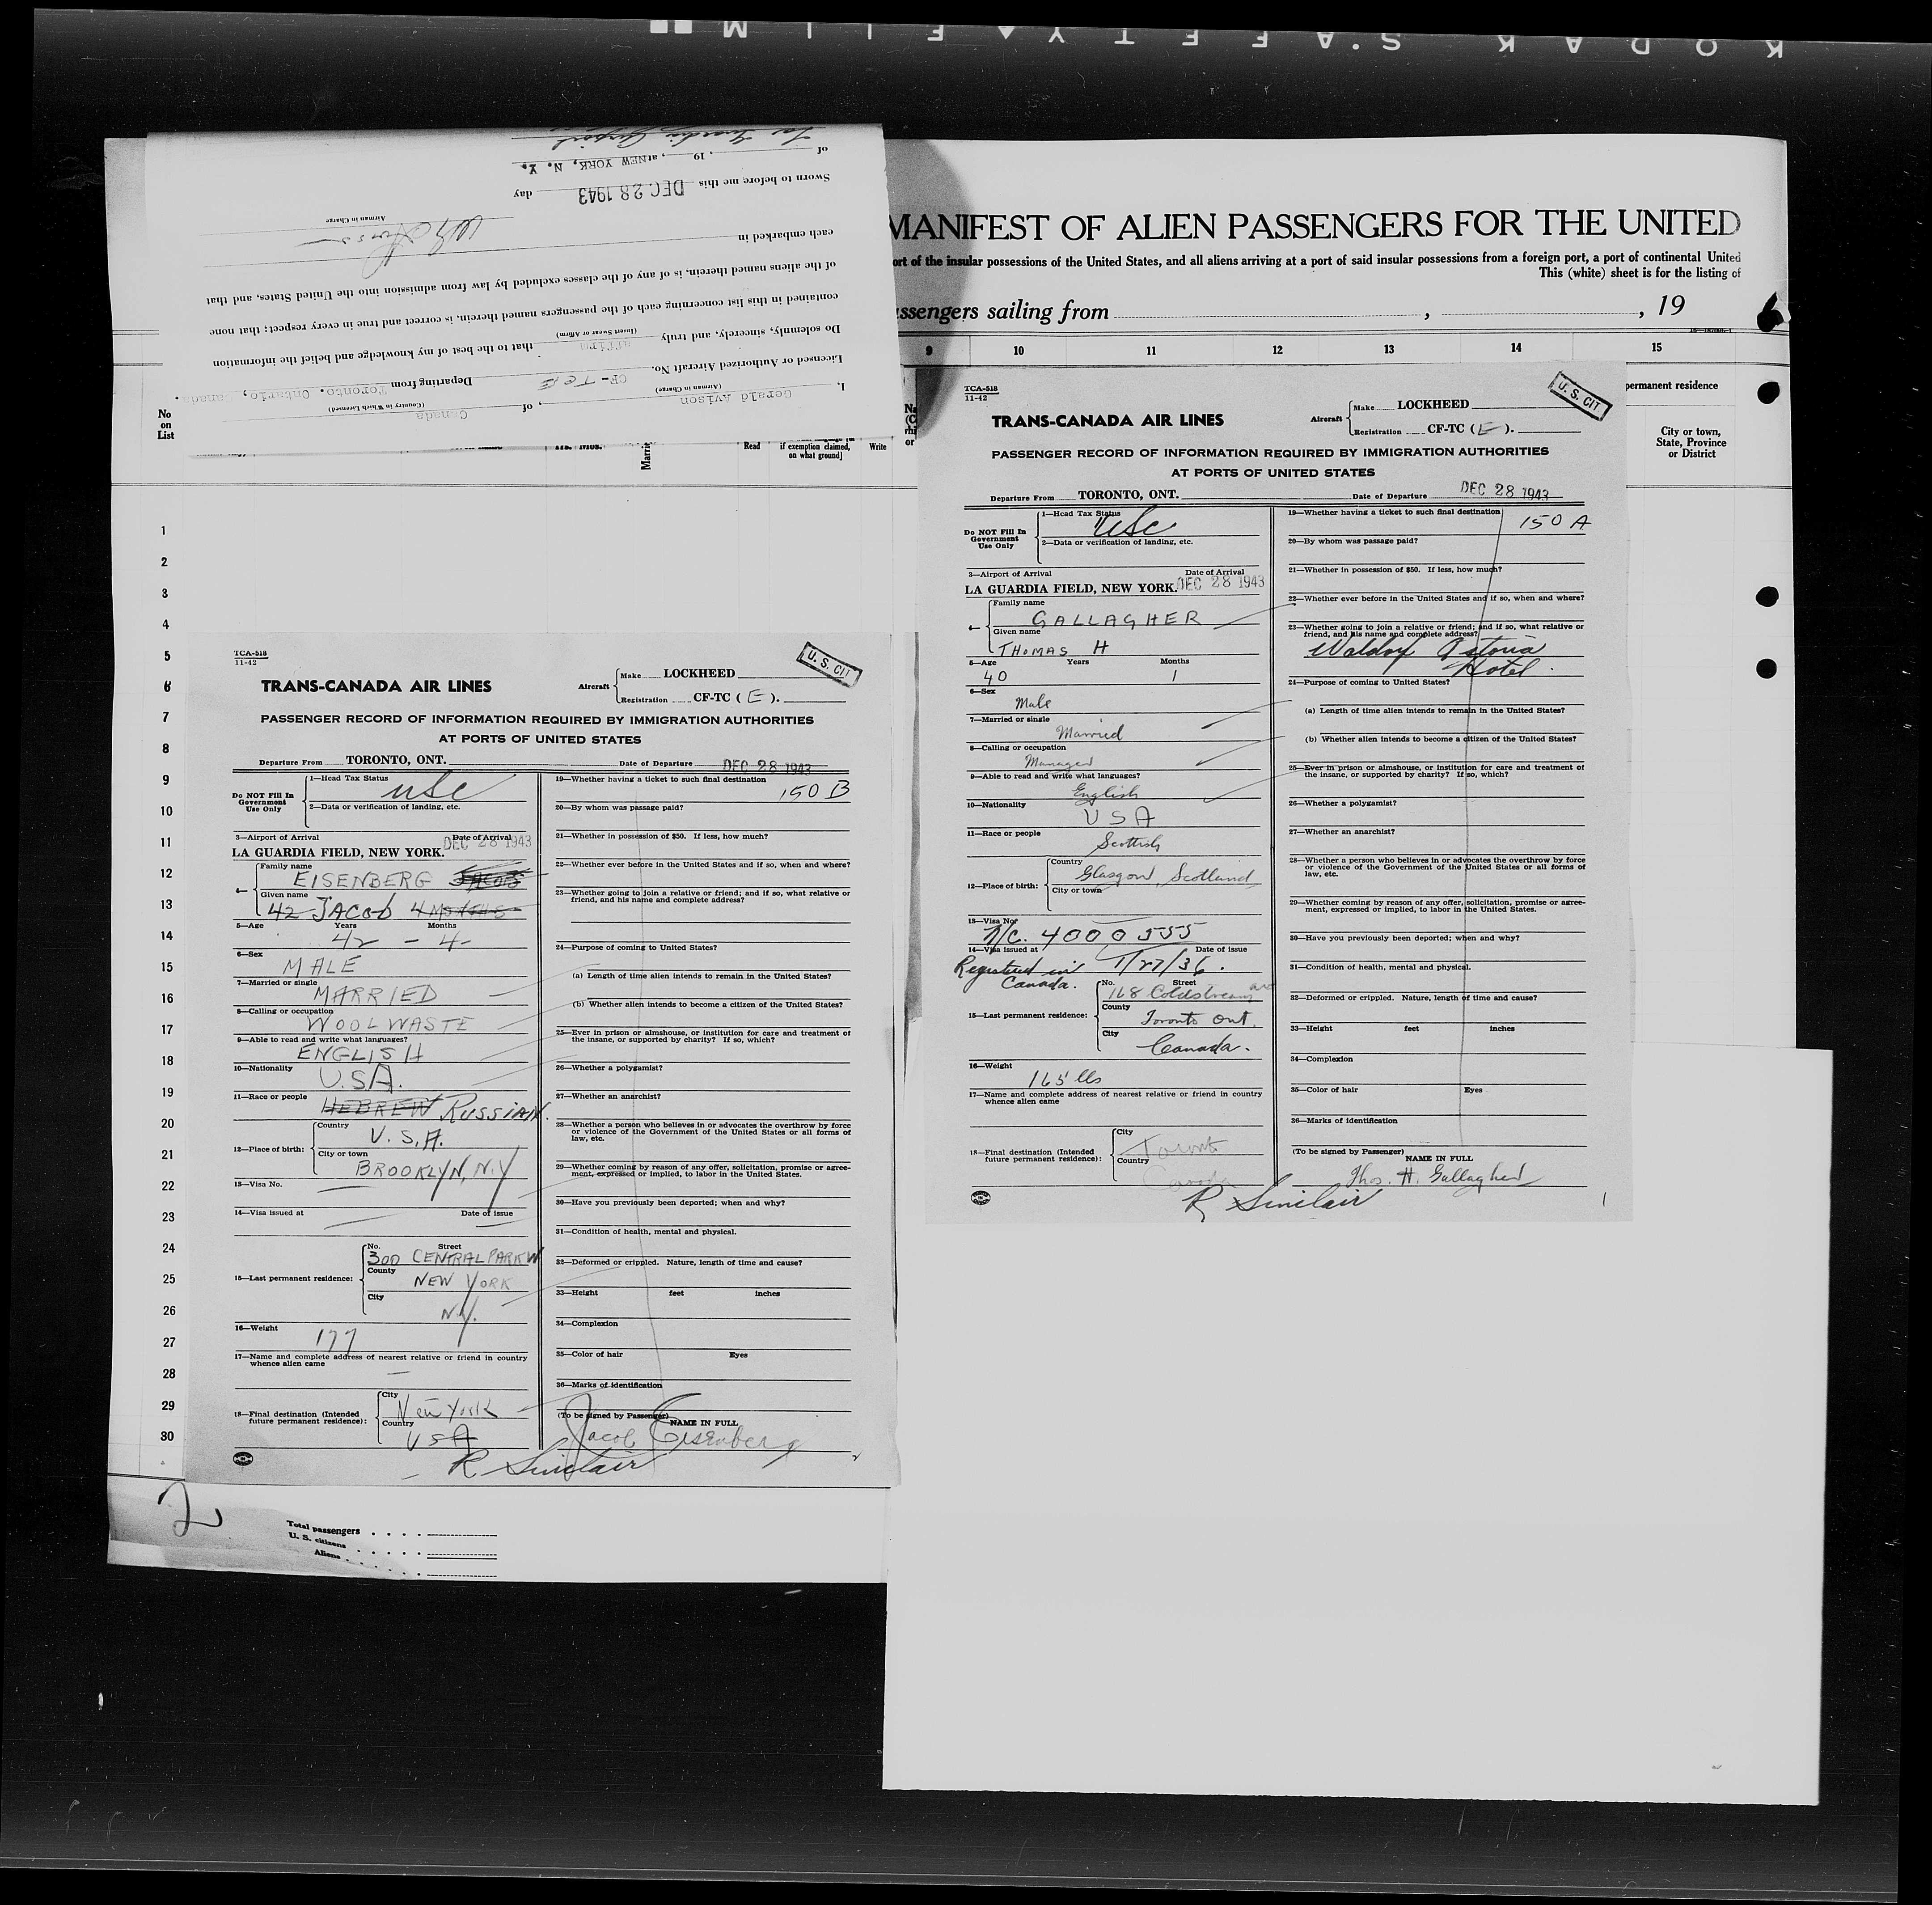 KODAK SAFETY FILM
of
Sworn to before me this DEC 28 1943 day
of , 19 , at NEW YORK, N. Y.
La Guardia Airport
Airman in Charge
each embarked in
of the aliens named therein, is of any of the classes excluded by law from admission into the United States, and that
contained in this list concerning each of the passengers named therein, is correct and true in every respect; that none
Do solemnly, sincerely, and truly affirm that to the best of my knowledge and belief the information
(Insert Swear or Affirm)
Licensed or Authorized Aircraft No. CF-TCE Departing from Toronto, Ontario, Canada.
I, Gerald Avison , of Canada
(Airman in Charge) (Country in Which Licensed)
No
on
List
Read
if exemption claimed,
on what ground]
Write
MANIFEST OF ALIEN PASSENGERS FOR THE UNITED
ort of the insular possessions of the United States, and all aliens arriving at a port of said insular possessions from a foreign port, a port of continental United
This (white) sheet is for the listing of
assengers sailing from , , 19
9 10 11 12 13 14 15
permanent residence
City or town,
State, Province
or District
1
2
3
4
5
6
7
8
9
10
11
12
13
14
15
16
17
18
19
20
21
22
23
24
25
26
27
28
29
30
TCA-518
11-42
U. S. CIT
TRANS-CANADA AIR LINES
Aircraft
Make LOCKHEED
Registration CF-TC ( E ).
PASSENGER RECORD OF INFORMATION REQUIRED BY IMMIGRATION AUTHORITIES
AT PORTS OF UNITED STATES
Departure From TORONTO, ONT. Date of Departure DEC 28 1943
Do NOT Fill In
Government
Use Only
1—Head Tax Status
USC
2—Data or verification of landing, etc.
3—Airport of Arrival Date of Arrival
LA GUARDIA FIELD, NEW YORK. DEC 28 1943
4—
Family name
EISENBERG JACOB
Given name
42 JACOB 4 MONTHS
5—Age Years Months
42 - 4-
6—Sex
MALE
7—Married or single
MARRIED
8—Calling or occupation
WOOL WASTE
9—Able to read and write what languages?
ENGLISH
10—Nationality
U.S.A.
11—Race or people
HEBREW RUSSIAN.
12—Place of birth:
Country
U.S.A.
City or town
BROOKLYN, N.Y
13—Visa No.
14—Visa issued at Date of issue
15—Last permanent residence:
No. Street
300 CENTRAL PARK W
County
NEW YORK
City
N.Y.
16—Weight
177
17—Name and complete address of nearest relative or friend in country
whence alien came
18—Final destination (Intended
future permanent residence):
City
New York
Country
USA
19—Whether having a ticket to such final destination
150 B
20—By whom was passage paid?
21—Whether in possession of $50. If less, how much?
22—Whether ever before in the United States and if so, when and where?
23—Whether going to join a relative or friend; and if so, what relative or
friend, and his name and complete address?
24—Purpose of coming to United States?
(a) Length of time alien intends to remain in the United States?
(b) Whether alien intends to become a citizen of the United States?
25—Ever in prison or almshouse, or institution for care and treatment of
the insane, or supported by charity? If so, which?
26—Whether a polygamist?
27—Whether an anarchist?
28—Whether a person who believes in or advocates the overthrow by force
or violence of the Government of the United States or all forms of
law, etc.
29—Whether coming by reason of any offer, solicitation, promise or agree-
ment, expressed or implied, to labor in the United States.
30—Have you previously been deported; when and why?
31—Condition of health, mental and physical.
32—Deformed or crippled. Nature, length of time and cause?
33—Height feet inches
34—Complexion
35—Color of hair Eyes
36—Marks of identification
(To be signed by Passenger)
NAME IN FULL
Jacob Eisenberg
R Sinclair
2
Total passengers
U. S. citizens
Aliens
TCA-518
11-42
U. S. CIT
TRANS-CANADA AIR LINES
Aircraft
Make LOCKHEED
Registration CF-TC ( E ).
PASSENGER RECORD OF INFORMATION REQUIRED BY IMMIGRATION AUTHORITIES
AT PORTS OF UNITED STATES
Departure From TORONTO, ONT. Date of Departure DEC 28 1943
Do NOT Fill In
Government
Use Only
1—Head Tax Status
USC
2—Data or verification of landing, etc.
3—Airport of Arrival Date of Arrival
LA GUARDIA FIELD, NEW YORK. DEC 28 1943
4—
Family name
GALLAGHER
Given name
THOMAS H
5—Age Years Months
40 1
6—Sex
Male
7—Married or single
Married
8—Calling or occupation
Manager
9—Able to read and write what languages?
English
10—Nationality
USA
11—Race or people
Scottish
12—Place of birth:
Country
Glasgow, Scotland
City or town
13—Visa No.
N/C. 4000555
14—Visa issued at Date of issue
Registered in 1/27/36.
Canada.
15—Last permanent residence:
No. Street
168 Coldstream ave
County
Toronto Ont.
City
Canada.
16—Weight
165 lbs
17—Name and complete address of nearest relative or friend in country
whence alien came
18—Final destination (Intended
future permanent residence):
City
Toronto
Country
Canada
19—Whether having a ticket to such final destination
150 A
20—By whom was passage paid?
21—Whether in possession of $50. If less, how much?
22—Whether ever before in the United States and if so, when and where?
23—Whether going to join a relative or friend; and if so, what relative or
friend, and his name and complete address?
Waldorf Astoria
Hotel.
24—Purpose of coming to United States?
(a) Length of time alien intends to remain in the United States?
(b) Whether alien intends to become a citizen of the United States?
25—Ever in prison or almshouse, or institution for care and treatment of
the insane, or supported by charity? If so, which?
26—Whether a polygamist?
27—Whether an anarchist?
28—Whether a person who believes in or advocates the overthrow by force
or violence of the Government of the United States or all forms of
law, etc.
29—Whether coming by reason of any offer, solicitation, promise or agree-
ment, expressed or implied, to labor in the United States.
30—Have you previously been deported; when and why?
31—Condition of health, mental and physical.
32—Deformed or crippled. Nature, length of time and cause?
33—Height feet inches
34—Complexion
35—Color of hair Eyes
36—Marks of identification
(To be signed by Passenger)
NAME IN FULL
Thos. H. Gallagher
R Sinclair
1